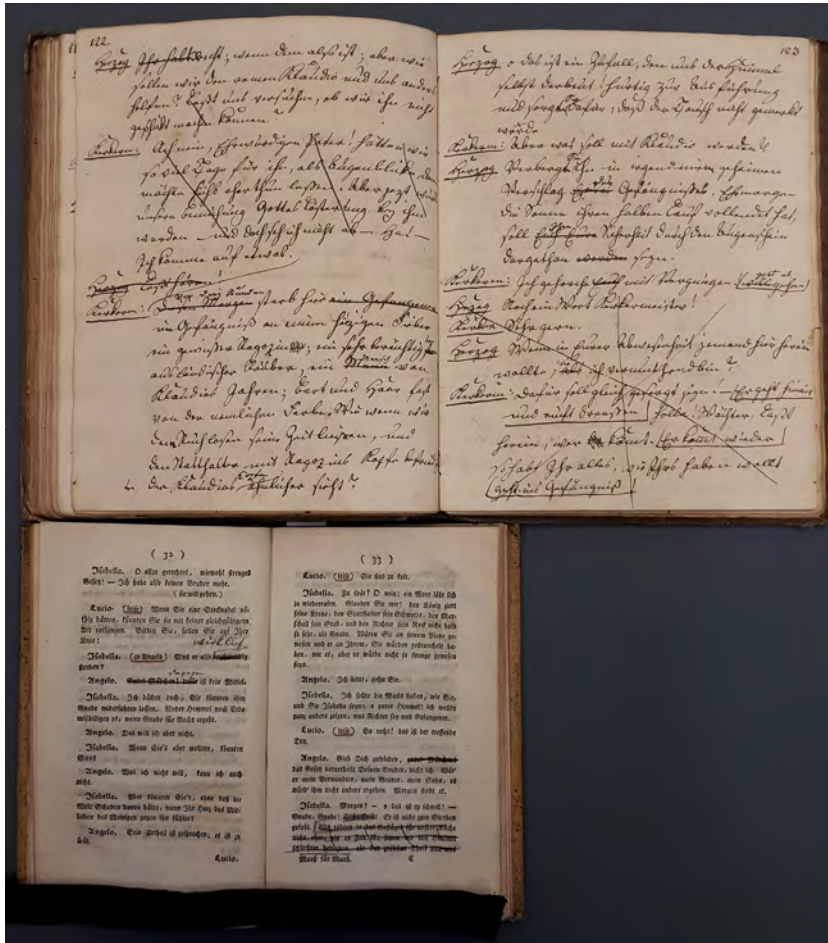 122
Herzog Ihr habt recht; wenn dem also ist; aber wie
sollen wir den armen Klaudio und uns anders
helfen? Laßt uns versuchen, ob wir ihn nicht
geschickt machen können?
Kerkerm: Ach nein, Ehrwürdiger Pater! hätten wir
so viel Tage für ihn, als Augenblicke,
möchte sichs eher thun lassen. Aber jezt
unsere Gottes Lästerung bey ihm
werden – und doch seh ich nicht ab – Ha! –
Ich komme auf etwas.
Herzog Laßt hören!
Kerkerm: Morgen sterb hier ein Gefangener
im Gefängniß an einem hizigen Fieber
ein gewisser Ragozin; ein sehr berüchtigter
ausländischer Räuber, ein Mensch von
Klaudios Jahren; Bart und Haar fast
von der nemlichen Farbe. Wie wenn wir
den Ruchlosen seine Zeit liessen, und
den Statthalter mit Ragozins Kopfe
der Klaudios ähnlicher sieht?
123
Herzog o das ist ein Zufall, den uns der Himmel
selbst Hurtig zur Ausführung
und sorgt dafür, daß der Tausch nicht gemerkt
werde
Kerkerm: Aber was soll mit Klaudio werden?
Herzog Verbergt ihn in irgend einem geheimen
Verschlag des Gefängnisses. Eh morgen
die Sonne ihren halben Lauf vollendet hat,
soll Eure Sicherheit durch den Augenschein
dargethan werden seyn.
Kerkerm: Ich gehorche Euch mit Vergnügen. (will gehen)
Herzog Noch ein Wort Kerkermeister!
Kerkerm Sehr gern.
Herzog Wenn in Eurer Abwesenheit jemand hier herein
wollte, ich vermuthend bin?
Kerkerm: Dafür soll gleich gesorgt seyn! – (Er geht hinaus
und ruft draussen) Holla! Wächter, Laßt
herein, wer kömt. (Er kömt wieder)
so habt Ihr alles, wie Ihrs haben wollt
(Geht ins Gefängniß)
( 32 )
Isabella. O allzu gerechtes, wiewohl strenges
Gesetz! — Ich habe also keinen Bruder mehr.
(sie will gehen.)
Lucio. (leise) Wenn Sie eine Stecknadel nö-
thig hätten, könnten Sie sie mit keiner gleichgültigern
Art verlangen. Bitten Sie, fallen Sie auf Ihre
Knie!
wirklich
Isabella. (zu Angelo) Muß er also
sterben?
Angelo. Gutes Mädchen! dafür ist kein Mittel.
dagegen
Isabella. Ich dächte doch, Sie könnten ihm
Gnade widerfahren lassen. Weder Himmel noch Erde
mißbilligen es, wenn Gnade für Recht ergeht.
Angelo. Das will ich aber nicht.
Isabella. Wenn Sie's aber wollten, könnten
Sies?
Angelo. Was ich nicht will, kann ich auch
nicht.
Isabella. Aber könnten Sie's, ohne daß die
Welt Schaden davon hätte; wenn Ihr Herz das Mit-
leiden des Meinigen gegen ihn fühlte?
Angelo. Sein Urtheil ist gesprochen; es ist zu
spät.
Lucio.
( 33 )
Lucio. (leise) Sie sind zu kalt.
Isabella. Zu spät? O nein; ein Wort läßt sich
ja wiederrufen. Glauben Sie mir: den König ziert
seine Krone, den Statthalter sein Schwerdt, den Mar-
schall sein Stab, und den Richter sein Rock nicht halb
so sehr, als Gnade. Wären Sie an seinem Platze ge-
wesen und er an Ihrem, Sie würden gestrauchelt ha-
ben, wie er, aber er würde nicht so strenge gewesen
seyn.
Angelo. Ich bitte, gehn Sie.
Isabella. Ich sollte die Macht haben, wie Sie,
und Sie Isabella seyn; o guter Himmel! ich wollte
ganz anders zeigen, was Richter sey und Gefangener.
Lucio. (leise) So recht! das ist der treffende
Ton.
Angelo. Gieb Dich zufrieden, gutes Mädchen!
das Gesetz verurtheilt Deinen Bruder, nicht ich. Wär'
er mein Verwandter, mein Bruder, mein Sohn, es
würd' ihm nicht anders ergehen. Morgen stirbt er.
Isabella. Morgen? — o das ist zu schnell! —
Gnade, Gnade! Er ist nicht zum Sterben
gefaßt.
Maaß für Maaß. C